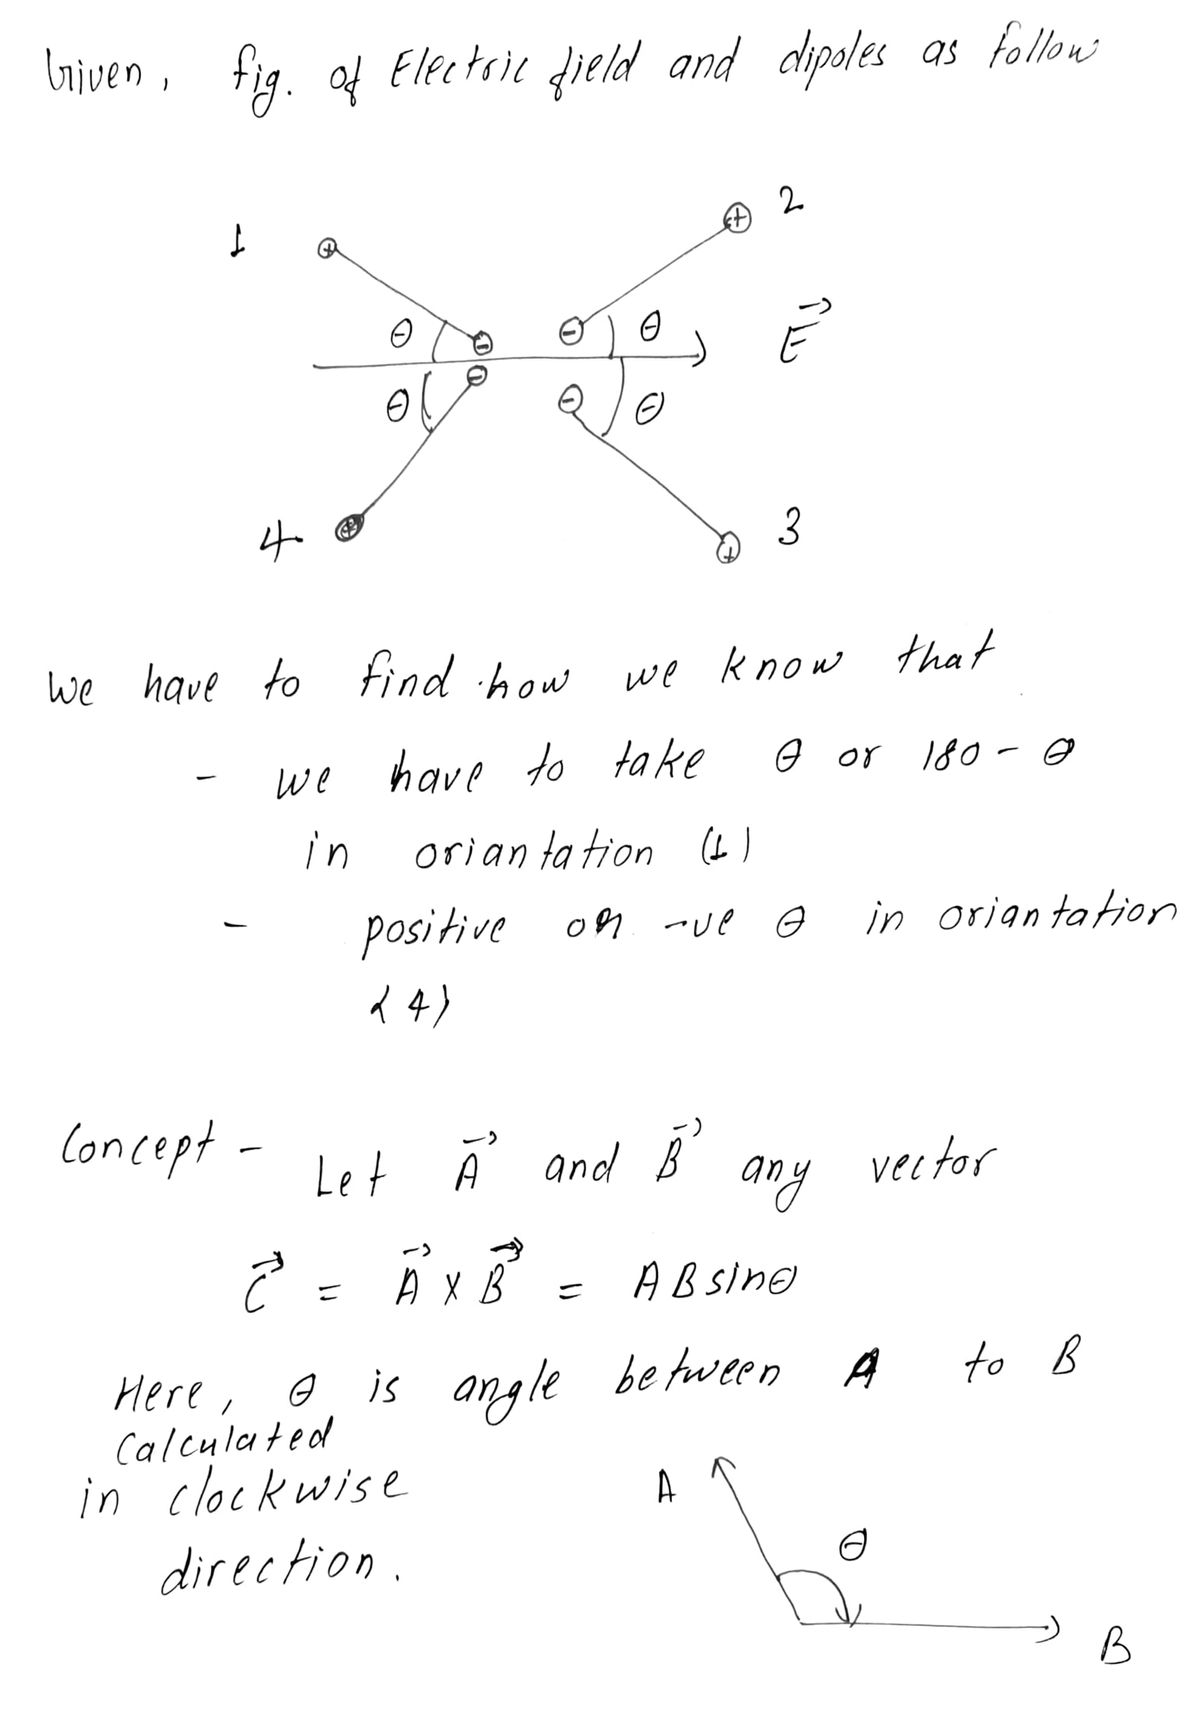 Given, fig. of Electric field and dipoles as follow
1
2
θ
θ
E
θ
θ
4
3
we have to find how we know that
- we have to take θ or 180 - θ
in oriantation (1)
- positive or -ve θ in oriantation
(4)
Concept - Let A and B any vector
C = A x B = AB sinθ
Here, θ is angle between A to B
Calculated
in clockwise
direction.
A
θ
B